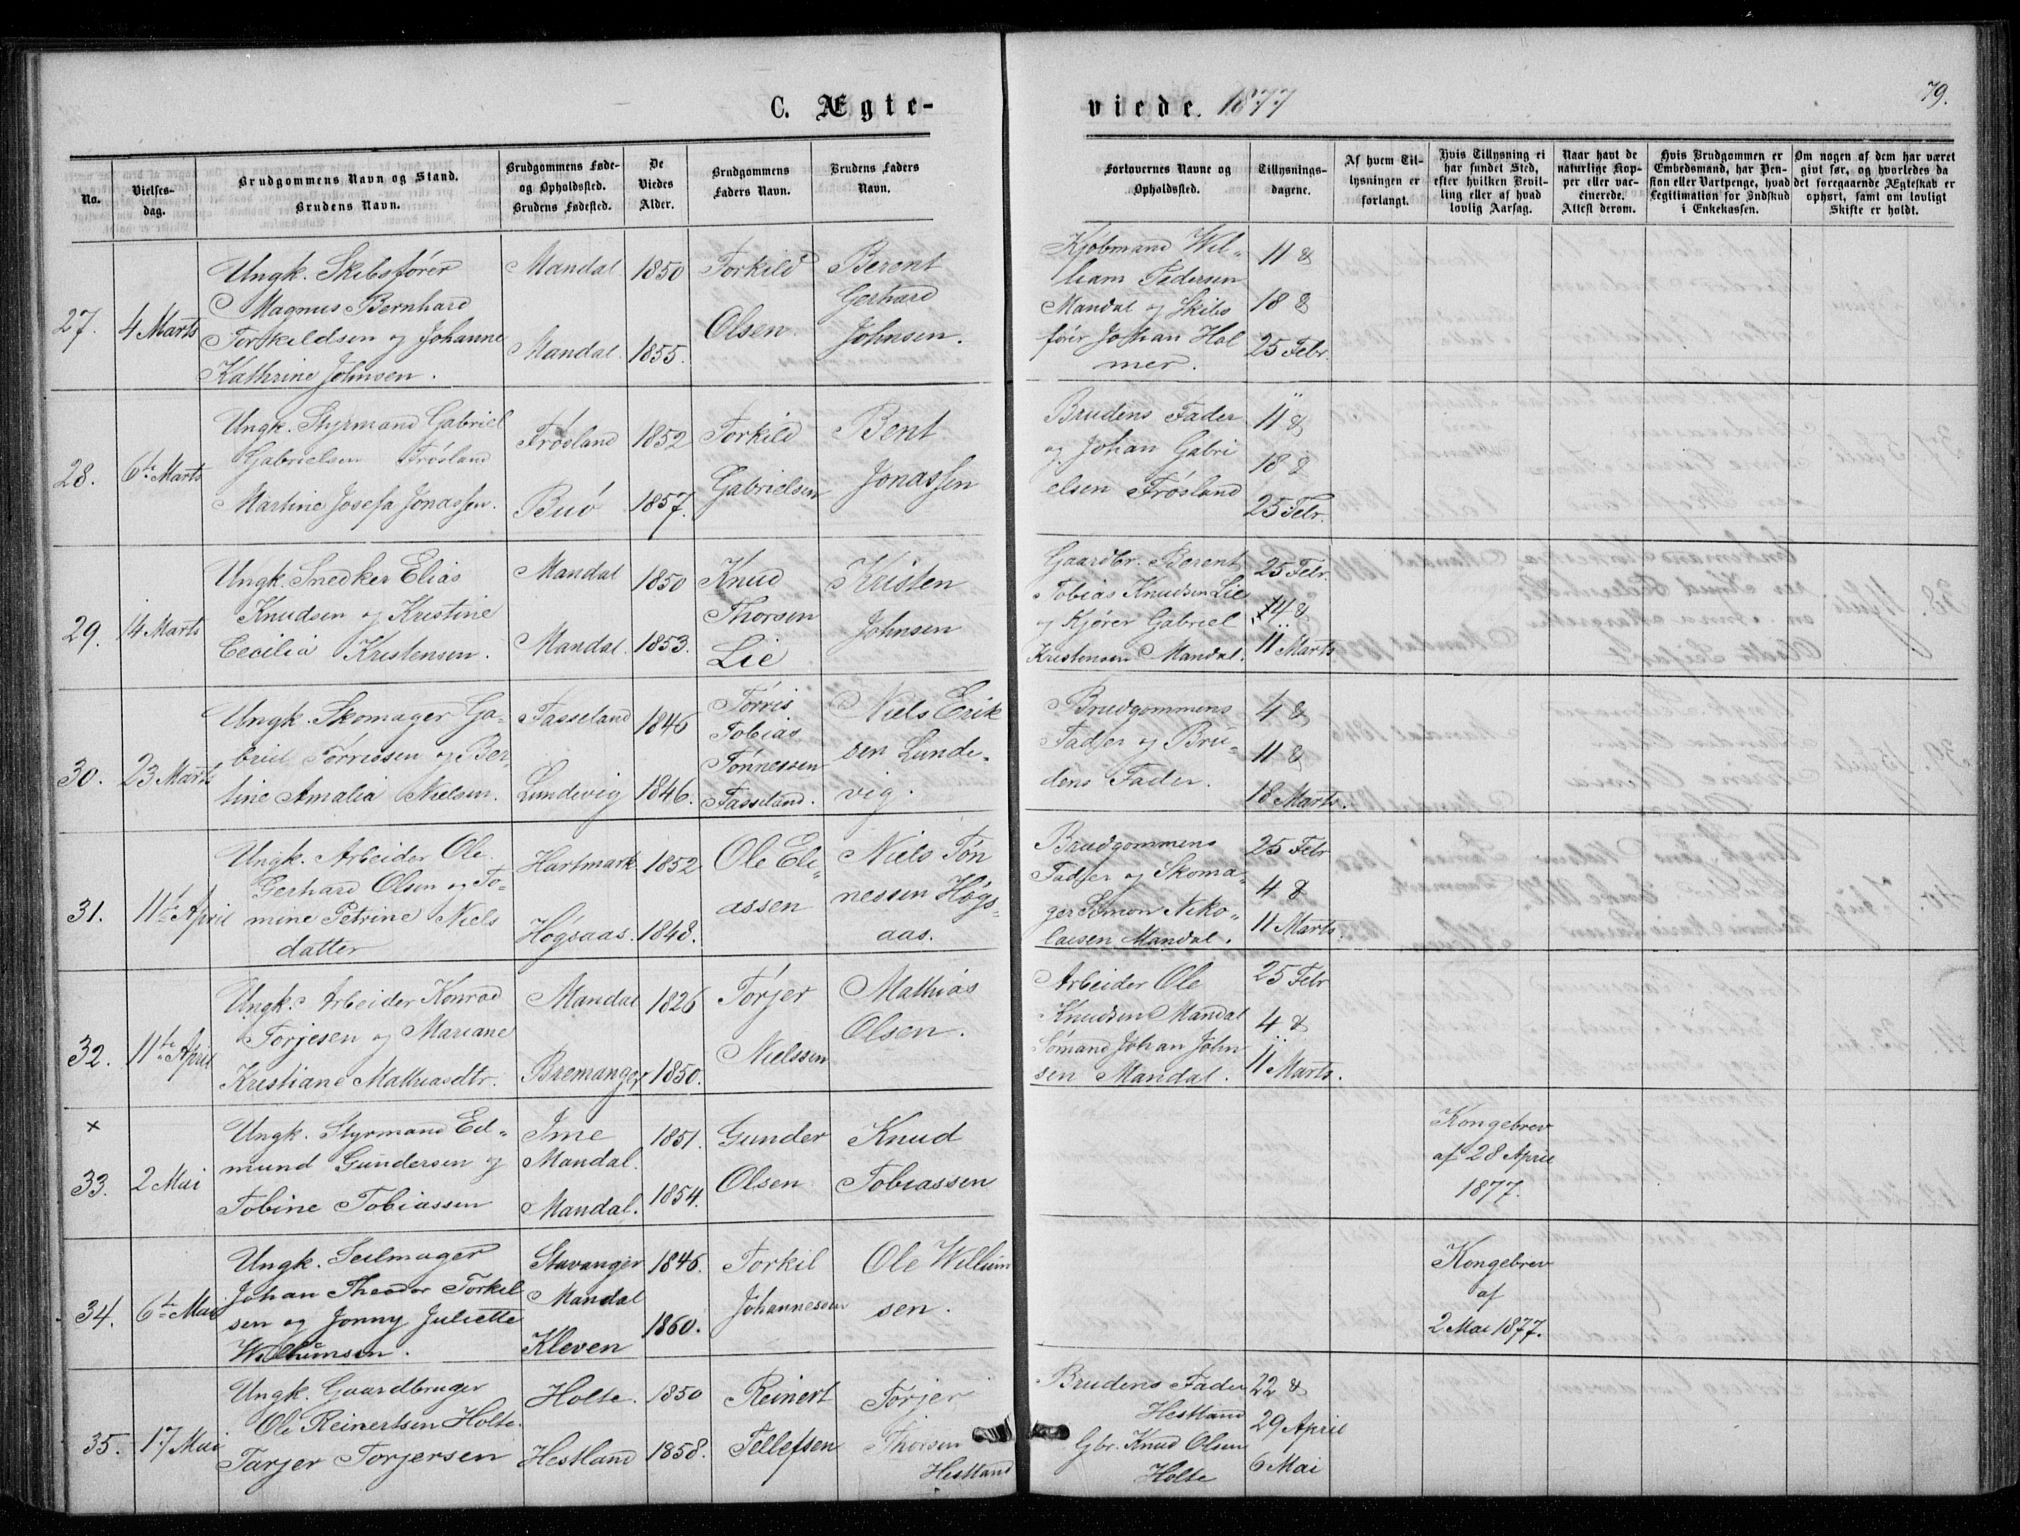 C. Ægte-
viede. 1877
79.
No.
Vielses-
dag.
Brudgommens Navn og Stand.
Brudens Navn.
Brudgommens Føde-
og Opholdssted.
Brudens Fødested.
De
Viedes
Alder.
Brudgommens
Faders Navn.
Brudens Faders
Navn.
Forlovernes Navne og
Opholdssted.
Tillysnings-
dagene.
Af hvem Til-
lysningen er
forlangt.
Hvis Tillysning ei
har fundet Sted,
efter hvilken Bevil-
ling eller af hvad
lovlig Aarsag.
Naar havt de
naturlige Kop-
per eller vac-
cinerede.
Attest derom.
Hvis Brudgommen er
Embedsmand, har Pen-
sion eller Vartpenge, hvad
Legitimation for Indskud
i Enkekassen.
Om nogen af dem har været
givt før, og hvorledes da
det foregaaende Ægteskab er
ophørt, samt om lovligt
Skifte er holdt.
27.
4 Marts
Ungk. Skibsfører
Magnus Bernhard
Torkildsen og Johanne
Kathrine Johnsen.
Mandal
Mandal.
1850
1855.
Torkild
Olsen.
Berent
Gerhard
Johnsen.
Kjøbmand Wil-
liam Pedersen
Mandal og Skibs
fører Johan Hol
mer.
11 &
18 &
25 Febr.
28.
6te Marts
Ungk. Styrmand Gabriel
Gabrielsen Frøsland
Martine Josefa Jonassen.
Frøsland
Buø
1852
1857.
Torkild
Gabrielsen
Bent
Jonassen
Brudens Fader
og Johan Gabri
elsen Frøsland
11 &
18 &
25 Febr.
29.
14 Marts
Ungk. Snedker Elias
Knudsen og Kristine
Cecilia Kristensen.
Mandal
Mandal.
1850
1853.
Knud
Thorsen
Lie
Kristen
Johnsen
Gaardbr. Berent
Tobias Knudsen Lie
og Kjører Gabriel
Kristensen Mandal.
25 Febr.
4 &
11 Marts
30.
23 Marts
Ungk. Skomager Ga-
briel Tørrissen og Ber-
tine Amalia Nielsen.
Tasseland
Lundevig
1846
1846.
Tørris
Tobias
Tønnessen
Tasseland.
Niels Erik
sen Lunde-
vig.
Brudgommens
Fader og Bru-
dens Fader.
4 &
11 &
18 Marts.
31.
11te April
Ungk. Arbeider Ole
Gerhard Olsen og To-
mine Petrine Niels
datter
Hartmark
Høgsaas.
1852.
1848.
Ole Eli-
assen
Niels Tøn
nessen Høgs-
aas.
Brudgommens
Fader og Skoma-
ger Simon Niko-
laisen Mandal.
25 Febr
4 &
11 Marts.
32.
11te April
Ungk. Arbeider Konrad
Torjesen og Mariane
Kristiane Mathiasdtr.
Mandal
Bremanger
1826
1850.
Tørjer
Nielssen
Mathias
Olsen.
Arbeider Ole
Knudsen Mandal
Sømand Johan John
sen Mandal.
25 Febr
4 &
11 Marts.
×
33.
2 Mai
Ungk. Styrmand Ed-
mund Gundersen og
Tobine Tobiassen
Ime
Mandal.
Mandal.
1851.
1854.
Gunder
Olsen
Knud
Tobiassen
Kongebrev
af 28 April
1877.
34.
6te Mai
Ungk. Seilmager
Johan Theodor Torkil
sen og Jonny Juliette
Willumsen.
Stavanger
Mandal
Kleven
1846.
1860.
Torkil
Johannessen
Ole Willum
sen.
Kongebrev
af
2 Mai 1877.
35.
17 Mai
Ungk. Gaardbruger
Ole Reinertsen Holte.
Tarjer Torjersen
Holte.
Hestland
1850
1858.
Reinert
Tellefsen
Tørjer
Thorsen
Hestland
Brudens Fader
Hestland
Gbr. Knud Olsen
Holte
22 &
29 April
6 Mai